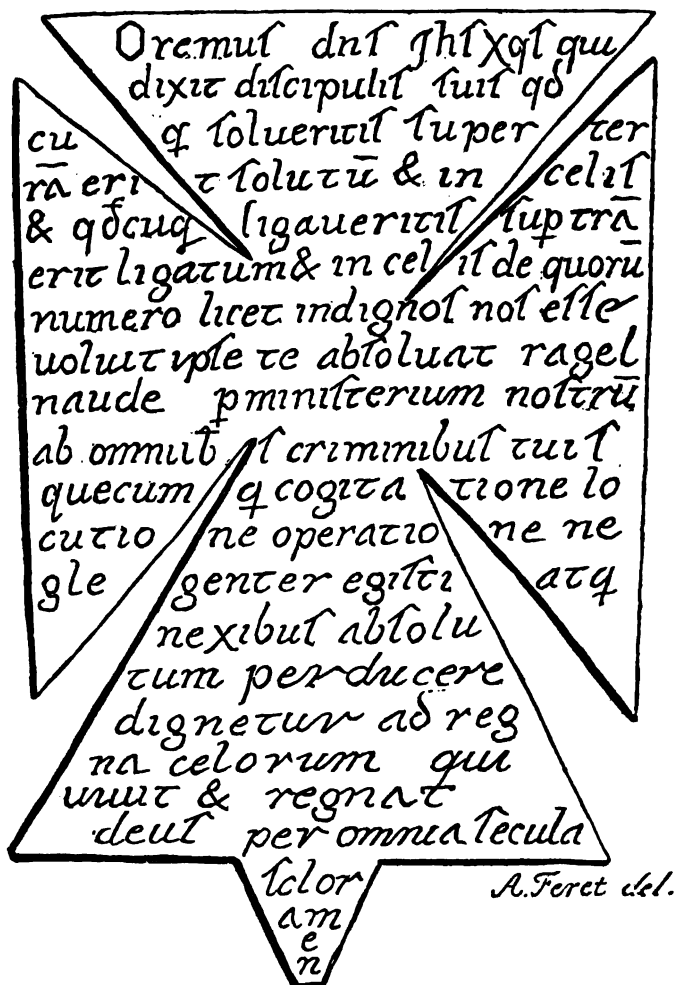 Oremuſ dnſ Jhſ Xqſ qui
dixit diſcipuliſ ſuiſ qđ
cu q ſolueritiſ ſuper ter
rā eri t ſolutū & in celiſ
& qđcuq ligaueritiſ ſuꝑ trā
erit ligatum & in cel iſ de quorū
numero licet indignoſ noſ eſſe
uoluit ipſe te abſoluat ragel
naude p miniſterium noſtrū
ab omnib ſ criminibuſ tuiſ
quecum q cogita tione lo
cutio ne operatio ne ne
gle genter egiſti atq
nexibuſ abſolu
tum perducere
dignetur ad reg
na celorum qui
uiuit & regnat
deuſ per omnia ſecula
ſclor
am
e
n
A. Feret del.